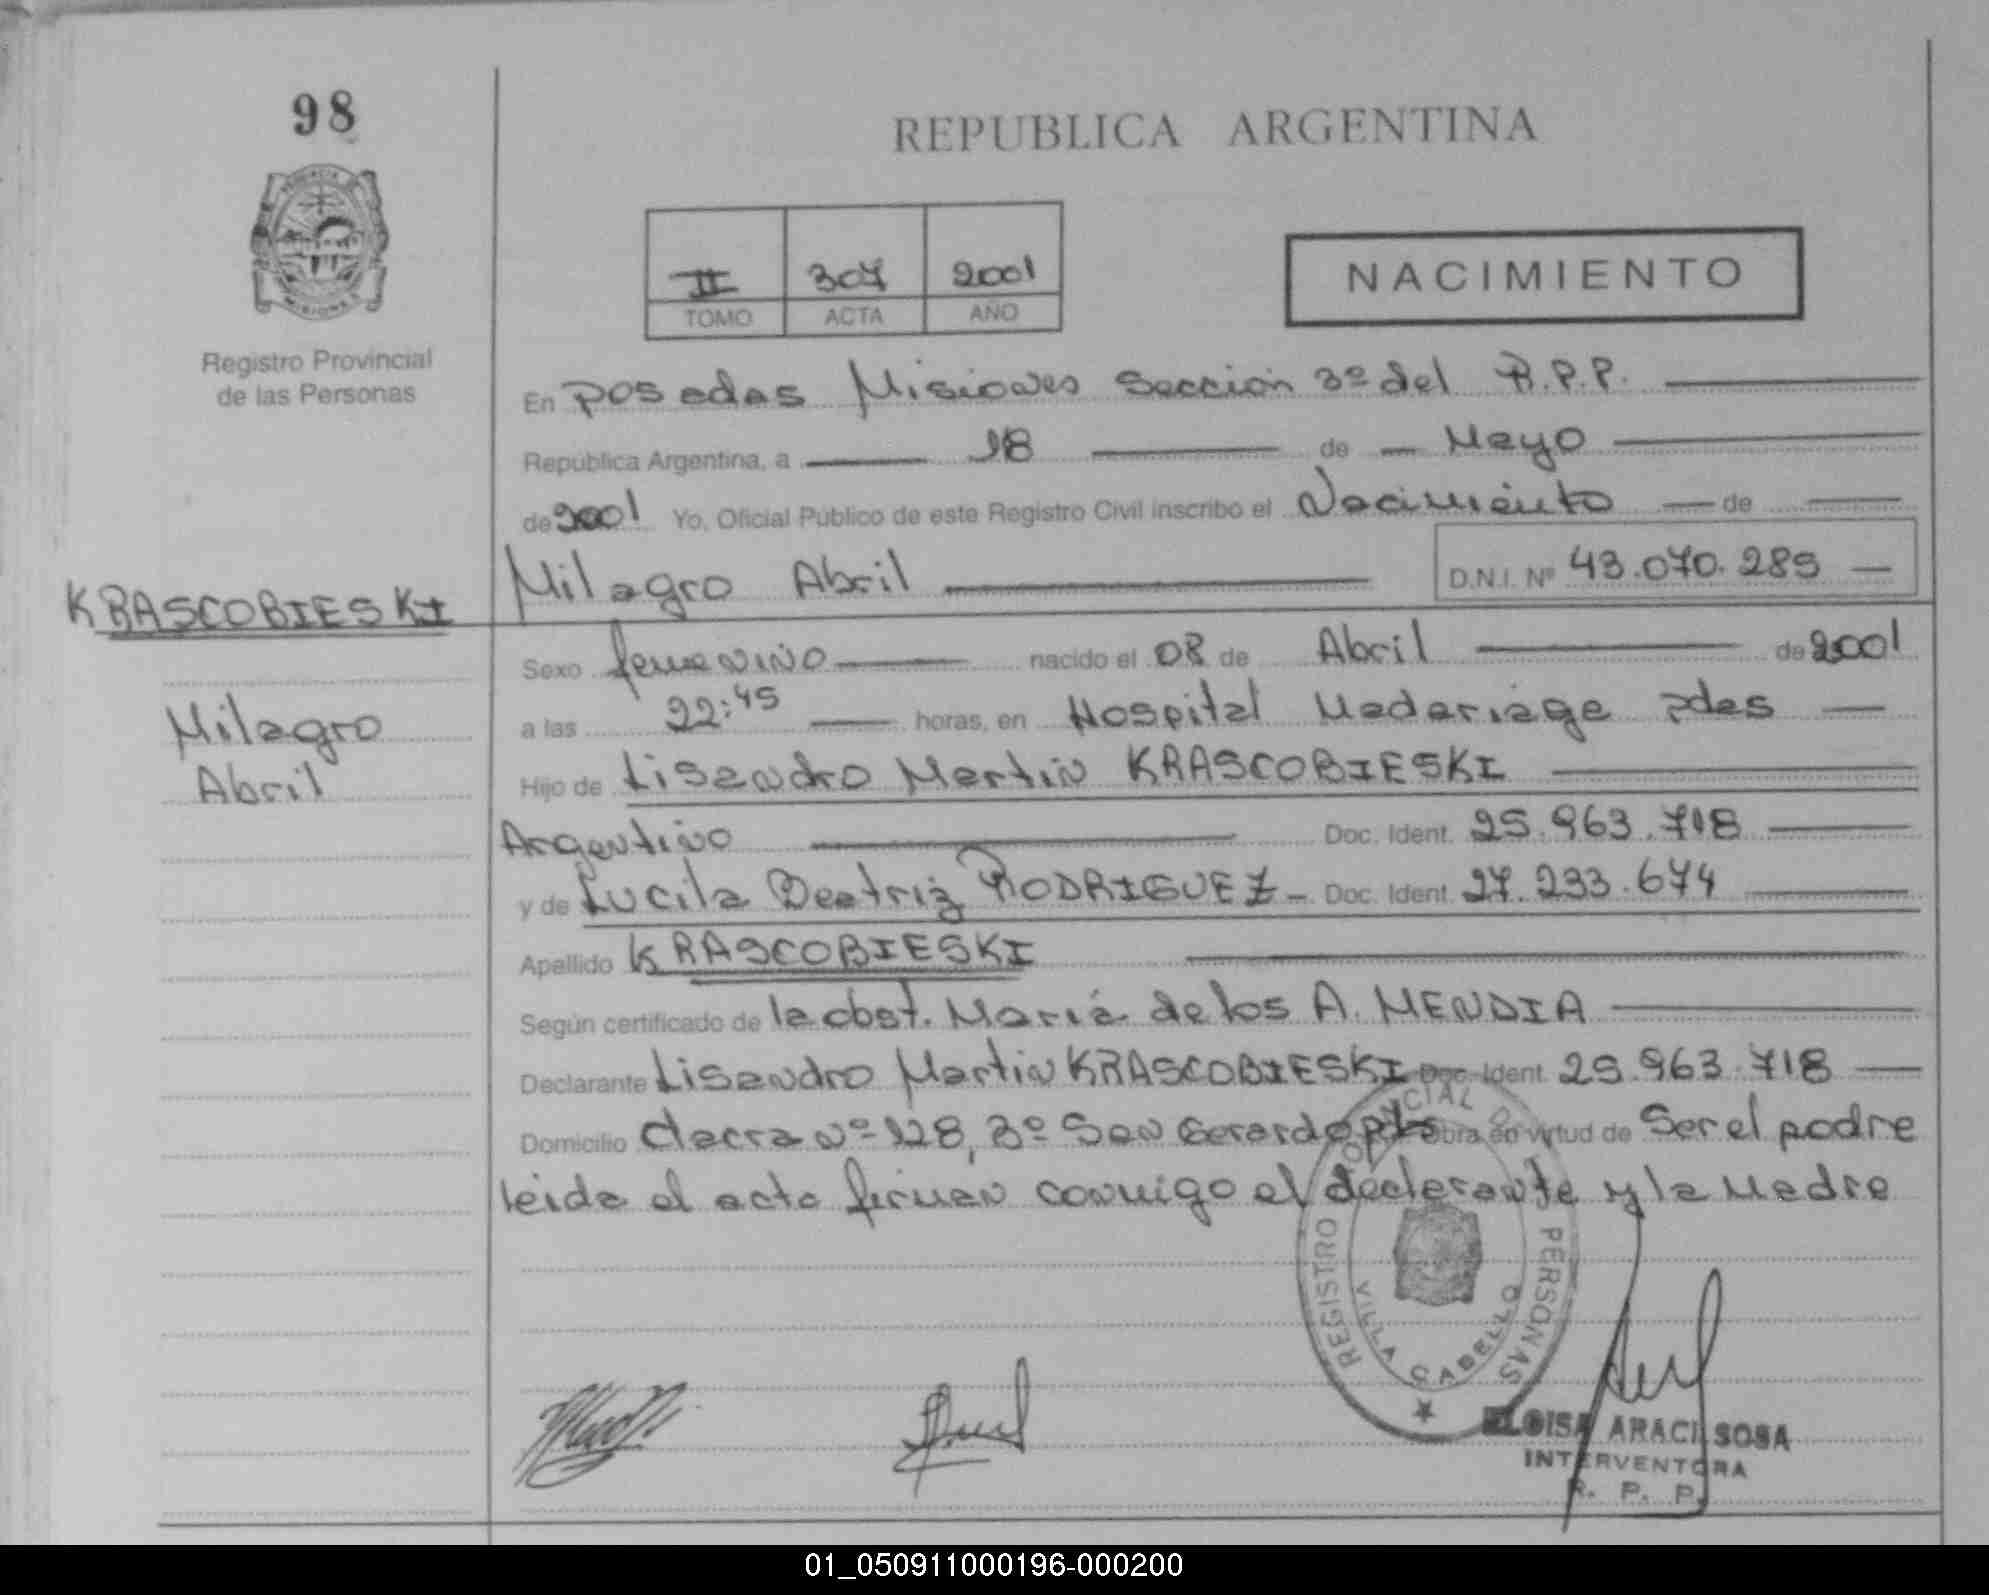 98
REPUBLICA ARGENTINA
II 307 2001
TOMO ACTA AÑO
NACIMIENTO
Registro Provincial
de las Personas
En Posadas Misiones Sección 3º del R.P.P.
República Argentina, a 18 de Mayo
de 2001 Yo, Oficial Público de este Registro Civil inscribo el Nacimiento de
Milagro Abril D.N.I. Nº 43.070.285
KRASCOBIESKI
Milagro
Abril
Sexo femenino nacido el 08 de Abril de 2001
a las 22:45 horas, en Hospital Madariaga Pdas
Hijo de Lisandro Martin KRASCOBIESKI
Argentino Doc. Ident. 25.963.718
y de Lucila Beatriz RODRIGUEZ Doc. Ident. 27.233.674
Apellido KRASCOBIESKI
Según certificado de la obst. María de los A. MENDIA
Declarante Lisandro Martin KRASCOBIESKI Doc. Ident. 25.963.718
Domicilio Chacra Nº 128, Bº San Gerardo Pdas Obra en virtud de Ser el padre
leida el acta firman conmigo el declarante y la Madre
REGISTRO PROVINCIAL DE PERSONAS
VILLA CABELLO
ELOISA ARACI SOSA
INTERVENTORA
R. P. P.
01_050911000196-000200